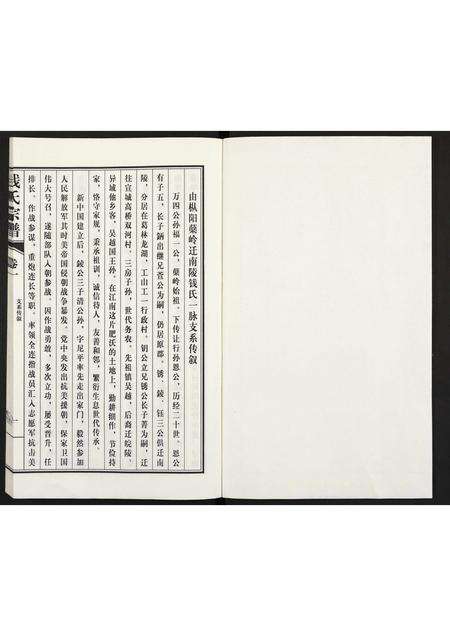 由枞阳蘽岭迁南陵钱氏一脉支系传叙
万四公孙福一公，蘽岭始祖。下传让行孙恩公，历经二十世。恩公
有子五，长子钢出继兄苍公为嗣，仍居原郡。锈、鋑、钰三公俱迁南
陵，分居在葛林龙湖，工山工一行政村。钥公立兄锈公长子菁为嗣，迁
往宣城高桥双河村。三房子孙，世代务农。先祖镇吴越，后裔迁皖陵。
异域他乡客，吴越国王孙。在江南这片肥沃的土地上，勤耕细作，节俭持
家，恪守家规，秉承祖训，诚信待人，友善和邻，繁衍生息世代传承。
新中国建立后，鋑公三子清公孙，字尼平率先走出家门，毅然参加
人民解放军其时美帝国侵朝战争暴发。党中央发出抗美援朝，保家卫国
伟大号召，遂随部队入朝参战。因作战勇敢，多次立功，屡受晋升，任
排长、作战参谋、重炮连长等职。率领全连指战员汇入志愿军抗击美
钱氏宗谱
卷一
支系传叙